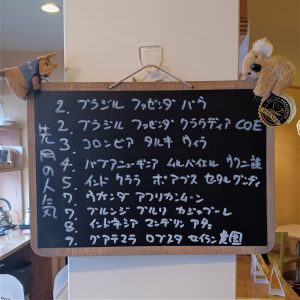 先月の人気
2. ブラジル ファゼンダ バウ
2. ブラジル ファゼンダ クラウディア COE
3. コロンビア タルキ ウィラ
4. パプアニューギニア
5. インド クララ ボアブス セタルグンディ
7. ウガンダ アフリカンムーン
7. ブルンジ ブルリ カジャブーレ
8. インドネシア マンデリン アチェ
9. グアテマラ ロブスタ セイラン農園